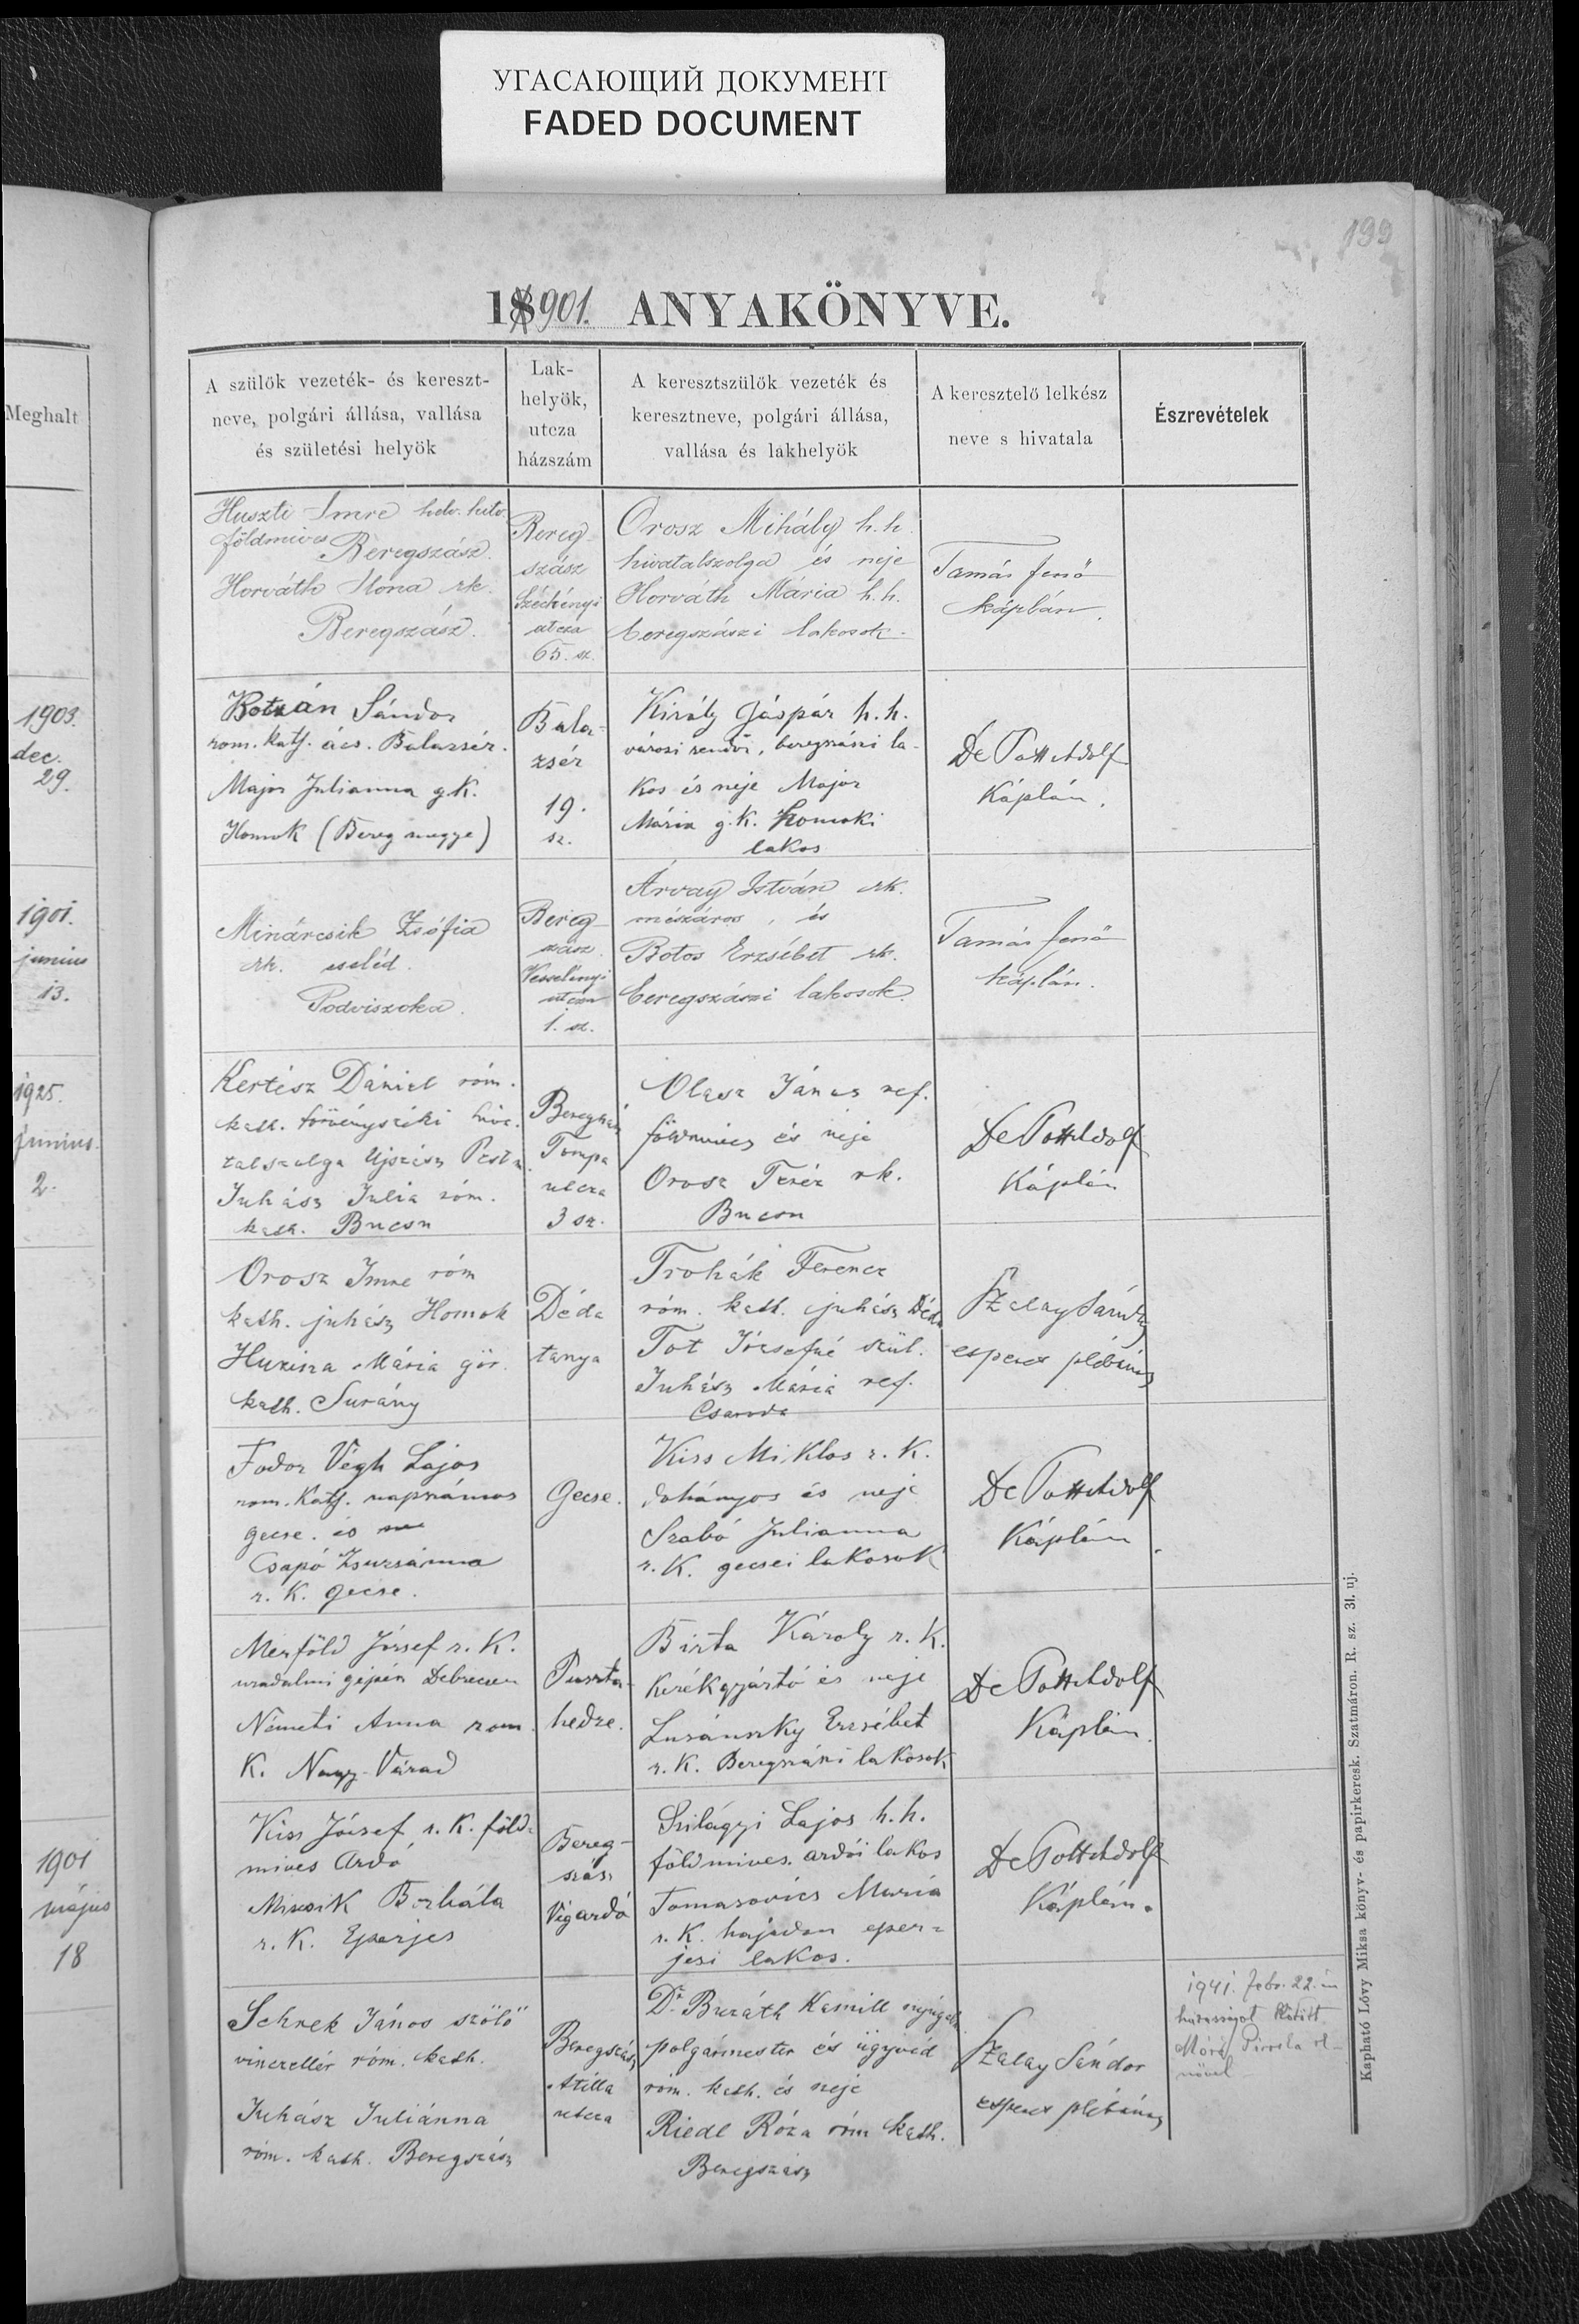 УГАСАЮЩИЙ ДОКУМЕНТ
FADED DOCUMENT
199
18901. ANYAKÖNYVE.
Meghalt
1903.
dec.
29.
1901.
junius
13.
1925.
junius.
2.
1901
május
18
A szülök vezeték- és kereszt-
neve, polgári állása, vallása
és születési helyök
Lak-
helyök,
utcza
házszám
A keresztszülök vezeték és
keresztneve, polgári állása,
vallása és lakhelyök
A keresztelő lelkész
neve s hivatala
Észrevételek
Huszti Imre helv. hitv.
földmives Beregszász.
Horváth Ilona rk.
Beregszász.
Bereg-
szász
Széchényi
utcza
65. sz.
Orosz Mihály h. h.
hivatalszolga és neje
Horváth Mária h. h.
beregszászi lakosok.
Tamás Jenő
káplán.
Botrán Sándor
rom. kath. ács. Balazsér.
Major Julianna g. K.
Homok (Bereg megye)
Bala-
zsér
19.
sz.
Király Gáspár h. h.
városi rendőr, beregszászi la-
kos és neje Major
Mária g. K. homoki
lakos
De Pott Adolf
Káplán.
Minárcsik Zsófia
rk. cseléd.
Podviszoka.
Bereg-
szász
Vesselényi
utcza
1. sz.
Árvay István rk.
mészáros, és
Botos Erzsébet rk.
beregszászi lakosok.
Tamás Jenő
káplán.
Kertész Dániel róm.
kath. törvényszéki hiva
talszolga Ujszász Pest m.
Juhász Julia róm.
kath. Bucsu
Beregszász
Tompa
utcza
3 sz.
Olasz János ref.
földmives és neje
Orosz Teréz rk.
Bucsu
De Pott Adolf
Káplán
Orosz Imre róm
kath. juhász Homok
Mária gör.
kath. Surány
Déda
tanya
Trohák Ferencz
róm. kath. juhász Déda
Tot Józsefné szül.
Juhász Mária ref.
Csaroda
Szalay Sándor
esperes plébános
Fodor Végh Lajos
rom. Kath. napszámos
gecse. és
Csapó Zsuzsánna
r. K. gecse.
Gecse.
Kiss Miklos r. K.
dohányos és neje
Szabó Julianna
r. K. gecsei lakosok
De Pott Adolf
Káplán.
Merföld József r. K.
uradalmi gépész Debreczen
Németi Anna rom.
K. Nagy-Várad
Puszta-
hedre.
Birta Károly r. K.
Kerékgyártó és neje
Lusánszky Erzsébet
r. K. Beregszászi lakosok
De Pott Adolf
Káplán.
Kiss József r. K. föld-
mives Ardó
Borbála
r. K. Eperjes
Bereg-
szász
Végardó
Szilágyi Lajos h. h.
földmives. ardói lakos
Tomasovics Maria
r. K. hajadon eper-
jesi lakos.
De Pott Adolf
Káplán.
Schrek János szőlő
vinczellér róm. kath.
Juhász Juliánna
róm. kath. Beregszász
Beregszász
Atilla
utcza
Dr. Buzáth Kamill
polgármester és ügyvéd
róm. kath. és neje
Riedl Róza róm kath.
Beregszász
Szalay Sándor
esperes plébános
1941. febr. 22-én
házasságot kötött
Móré Piroska r-
nővel
Kapható Lővy Miksa könyv- és papirkeresk. Szatmáron. R. sz. 31. uj.